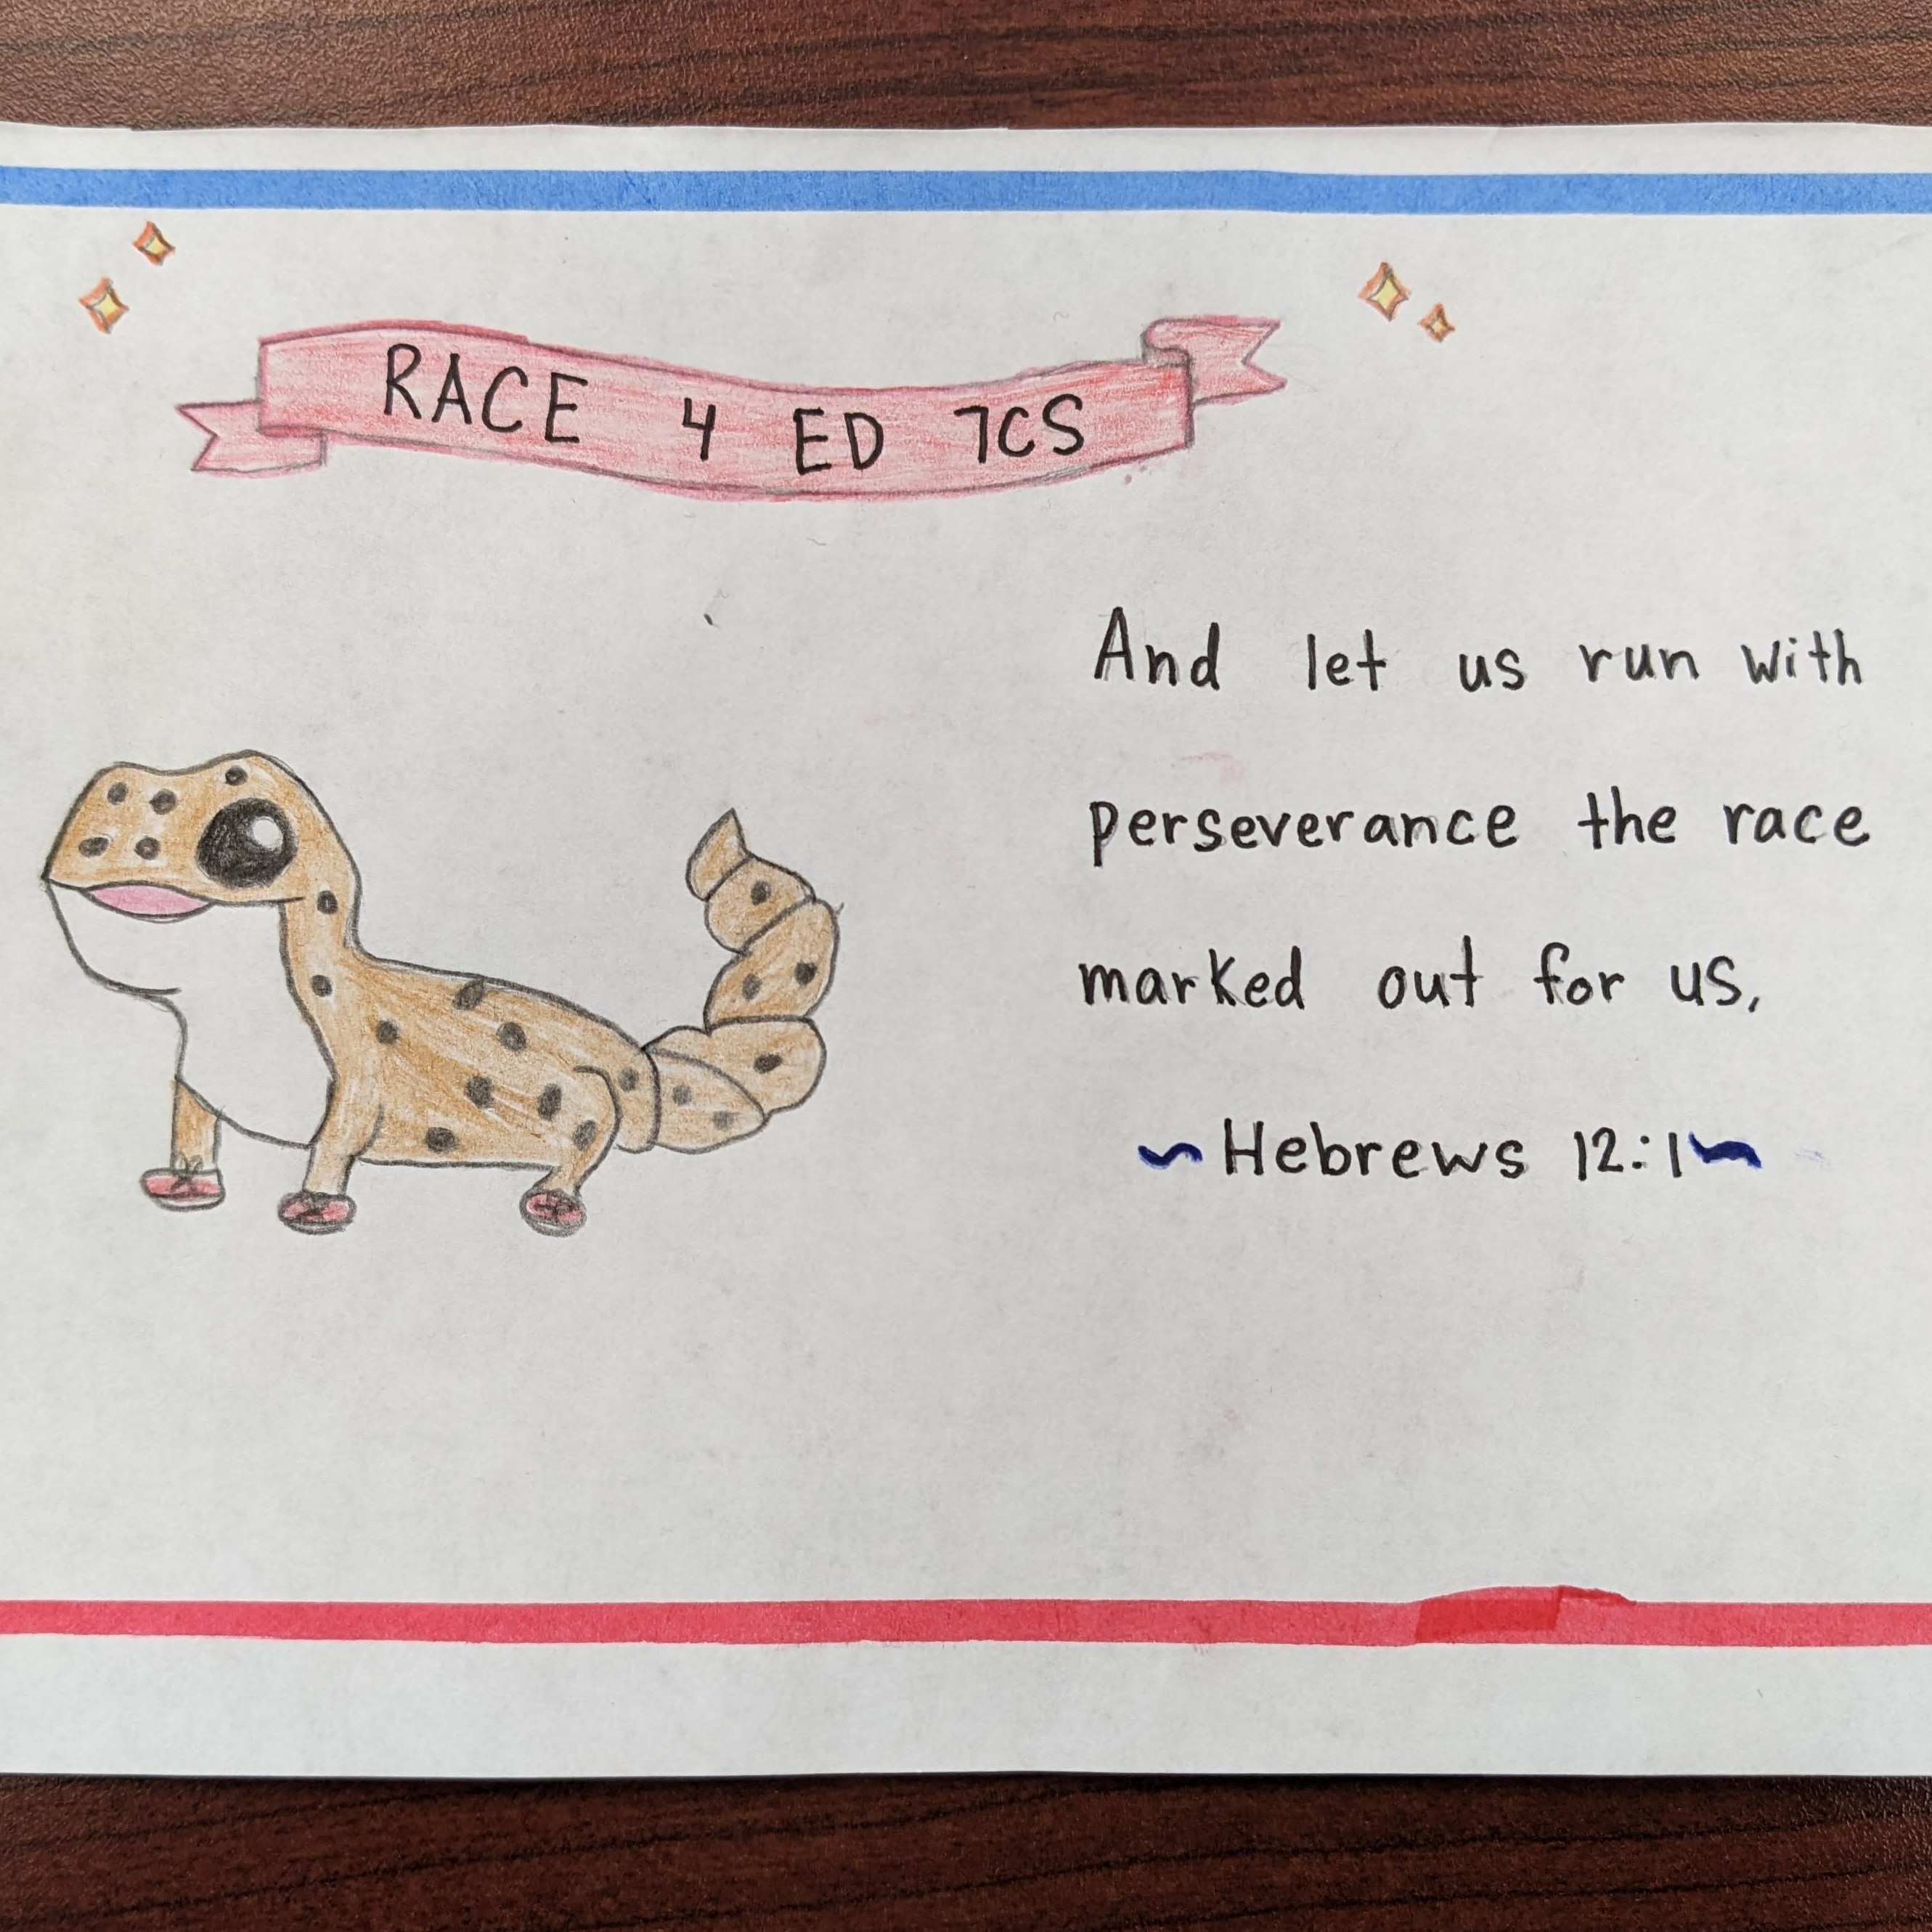 RACE 4 ED 7CS
And let us run with
perseverance the race
marked out for us.
~Hebrews 12:1~